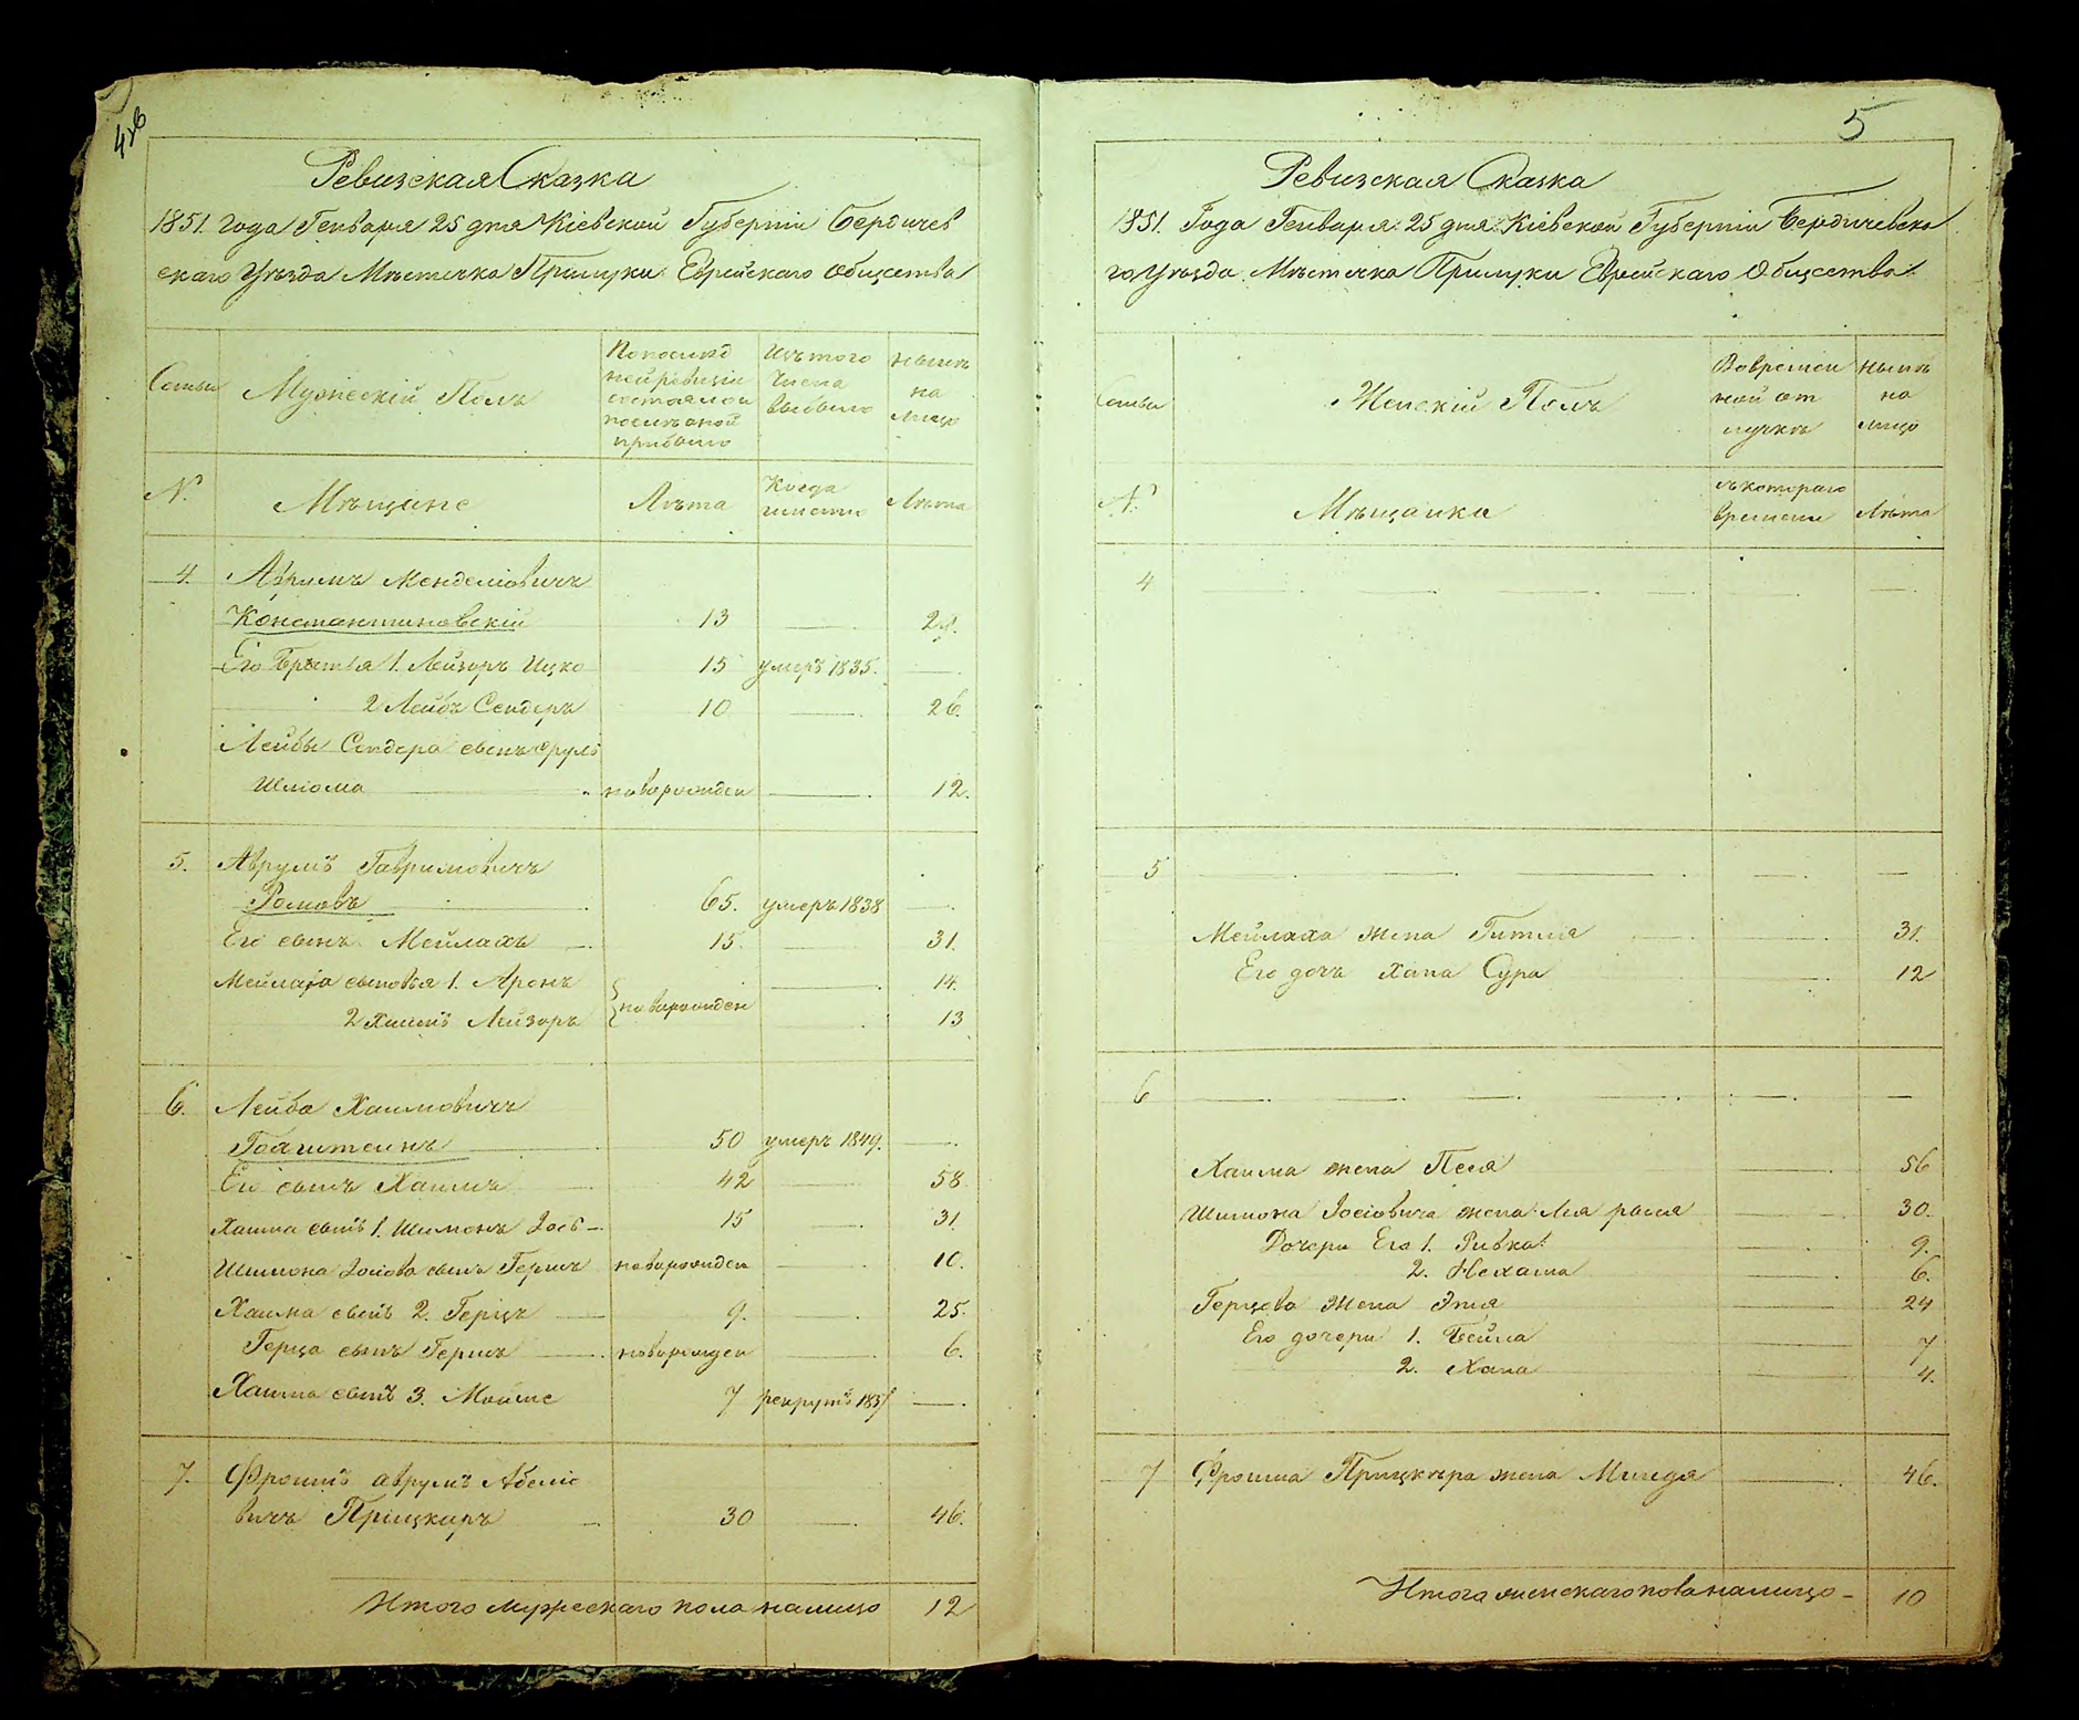 4об
Ревизская Сказка
1851. года Генваря 25 дня Кіевской Губерніи Бердичев
скаго Уѣзда Мѣстечка Прилуки Еврейскаго Общества
Семьи
Мужескій Полъ
По послед
ней ревизіи
состояло и
послѣ оной
прибыло
Изъ того
числа
выбыло
нынѣ
на
лицо
N.
Мѣщане
Лѣта
Когда
именно
Лѣта
4. Аврумъ Менделіовичъ
Константиновскій 13 — 29.
Его братья 1. Лейзоръ Ицко 15 умеръ 1835. —
2 Лейбъ Сендеръ 10 — 26.
Лейбы Сендера сынъ Сруль
Шлиома новорожден — 12.
5. Аврумъ Гавриловичъ
65. умеръ 1838 —
Его сынъ Мейлахъ 15. — 31.
Мейлаха сыновья 1. Аронъ — 14.
2 Хаимъ Лейзоръ новорожден — 13
6. Лейба Хаимовичъ
50 умеръ 1849. —
Его сынъ Хаимъ 42 — 58.
Хаима сынъ 1. Шимонъ Іось 15 — 31.
Шимона Іосіова сынъ Гершъ новорожден — 10.
Хаима сынъ 2. Герцъ 9. — 25.
Герца сынъ Гершъ новорожден — 6.
Хаима сынъ 3. Мойше 7 рекрутъ 1837 —
7. Фроимъ аврумъ Абеліо
вичъ Пріцкаръ 30 — 46.
Итого мужескаго пола налицо 12
5
Ревизская Сказка
1851. Года Генваря 25 дня Кіевской Губерніи Бердичевска
го Уѣзда Мѣстечка Прилуки Еврейскаго Общества.
Семьи
Женскій Полъ
Во времен
ной от
лучкѣ
нынѣ
на
лицо
N.
Мѣщанки
съ котораго
времени
Лѣта
4 — — — — — —
5 — — — — —
Мейлаха жена Гитля — 31.
Его дочь Хана Сура — 12
6 — — — — — —
Хаима жена Песя — 56
Шимона Іосіовича жена Лея рася — 30.
Дочери Его 1. Ривка — 9.
2. Нехама — 6.
Герцова Жена Этя — 24
Его дочери 1. Бейла — 7
2. Хана — 4.
7 Фроима Прицкера жена Минда — 46.
Итого женскаго пола налицо — 10